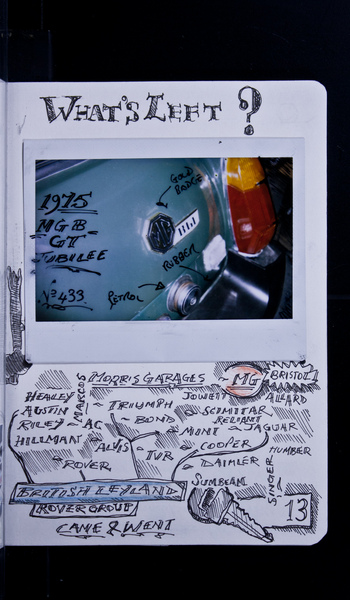 WHAT'S LEFT ?
GOLD BADGE
1975
MGB
GT
JUBILEE
No 433
RUBBER
PETROL
MORRIS GARAGES
MG
BRISTOL
HEALEY
MARCOS
JOWETT
ALLARD
AUSTIN
TRIUMPH
SCIMITAR
RELIANT
RILEY
AC
BOND
MINI
JAGUAR
HILLMAN
ALVIS
TVR
COOPER
HUMBER
ROVER
DAIMLER
SINGER
SUNBEAM
BRITISH LEYLAND
ROVER GROUP
CAME & WENT
13